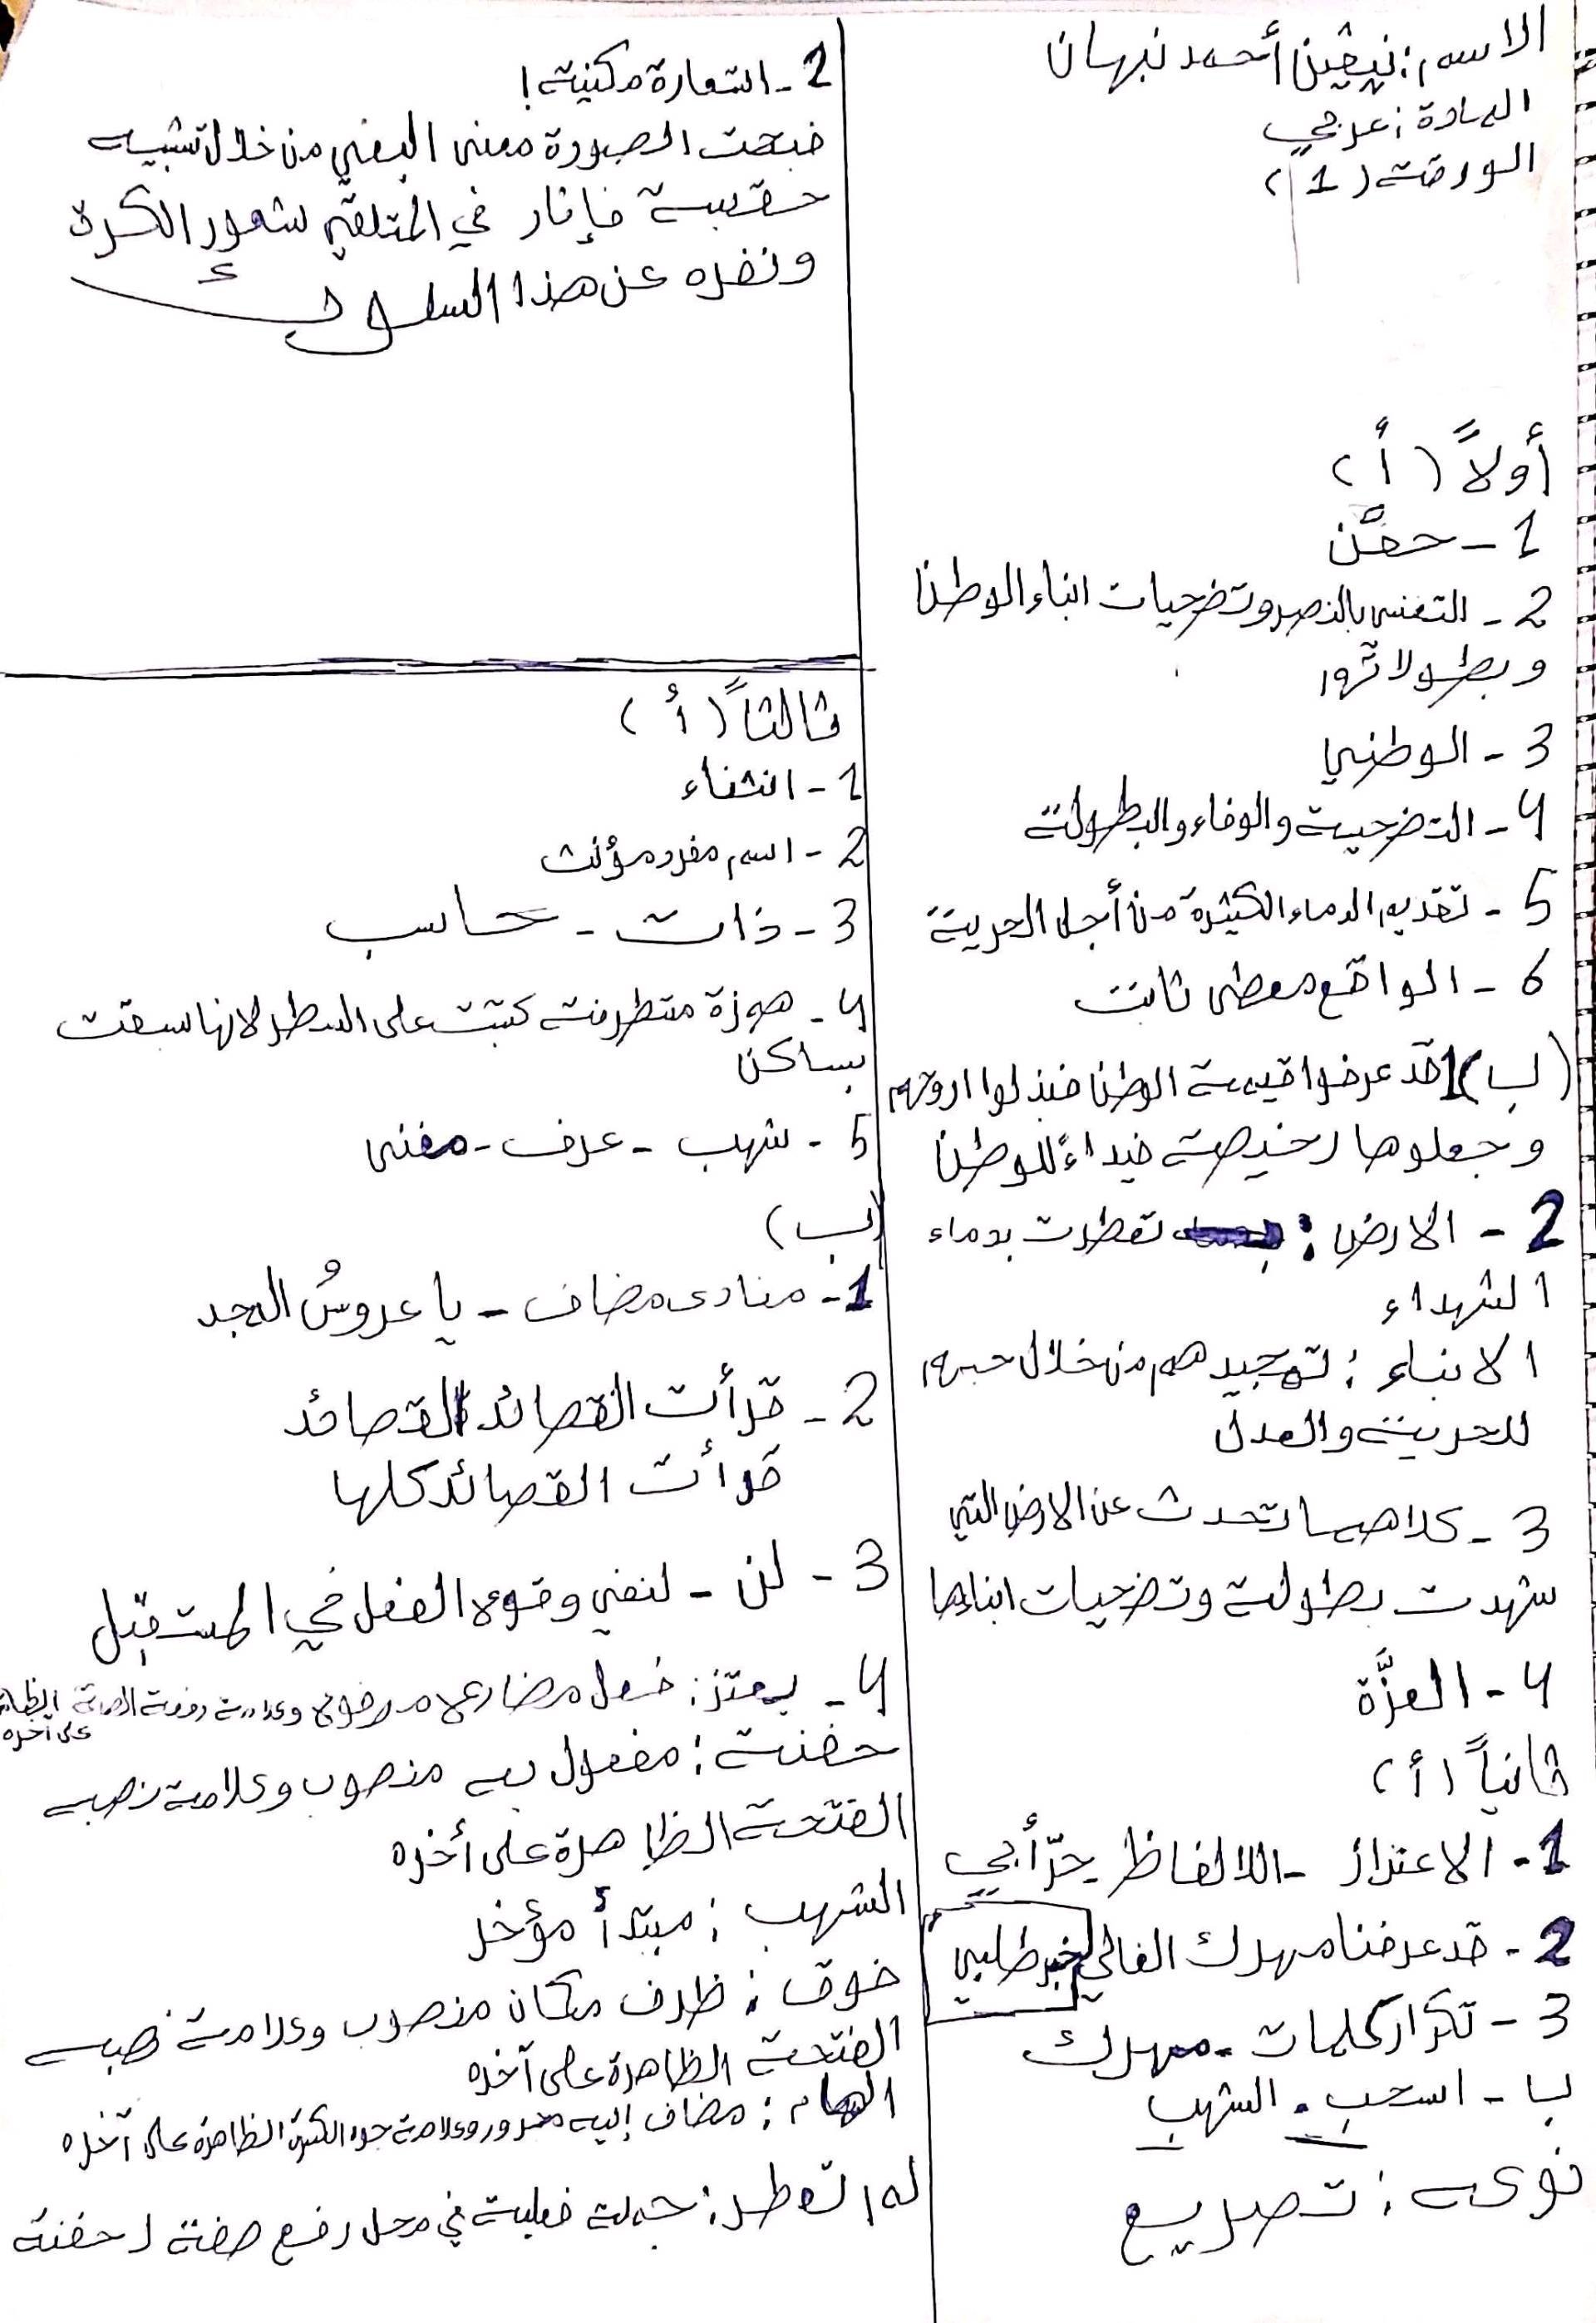 الاسم: نيفين أحمد نبهان
المادة: عربي
الورقة (1)
أولاً (أ)
1 - حفن
2 - التغني بالنصر وتضحيات ابناء الوطن
وبطولاتهم
3 - الوطني
4 - التضحية والوفاء والبطولة
5 - تقديم الدماء الكثيرة من أجل الحرية
6 - الواقع معطى ثابت
(ب) 1 قد عرضوا قيمة الوطن فبذلوا اروحهم
وجعلوها رخيصة فداءً للوطن
2 - الارض: تعطرت بدماء
الشهداء
الابناء: تمجيدهم من خلال حبهم
للحرية والعدل
3 - كلاهما تحدث عن الارض التي
شهدت بطولة وتضحيات ابناءها
4 - العزَّة
ثانياً (أ)
1 - الاعتزاز - اللالفاظ - حرّ أبي
2 - قد عرفنا مهرك الغالي خبر طلبي
3 - تكرار كلمات - مهرك
ب - اسحب - الشهب
نوعه: تصريع
2 - استعارة مكنية!
قبحت الصورة معنى البغي من خلال تشبيه
حقيبة فإثار في المتلقي شعور الكرة
ونفره عن هذا السلوك
ثالثاً (أ)
1 - انشاء
2 - اسم مفرد مؤنث
3 - ذات - حاسب
4 - همزة متطرفة كتبت على السطر لانها سبقت
بساكن
5 - شهب - عرف - مغنى
(ب)
1 - منادى مضاف - يا عروسُ المجد
2 - قرأت القصائد القصائد
قرأت القصائد كلها
3 - لن - لنفي وقوع الفعل في المستقبل
4 - يعتز: فعل مضارع مرفوع وعلامة رفعه الضمة الظاهرة
على آخره
حفنة: مفعول به منصوب وعلامة نصبه
الفتحة الظاهرة على أخره
الشهب: مبتدأ مؤخر
فوق: ظرف مكان منصوب وعلامة نصبه
الفتحة الظاهرة على آخره
الهام: مضاف إليه مجرور وعلامة جره الكسرة الظاهرة على آخره
لم تعطر: جملة فعلية في محل رفع صفة لـ حفنة